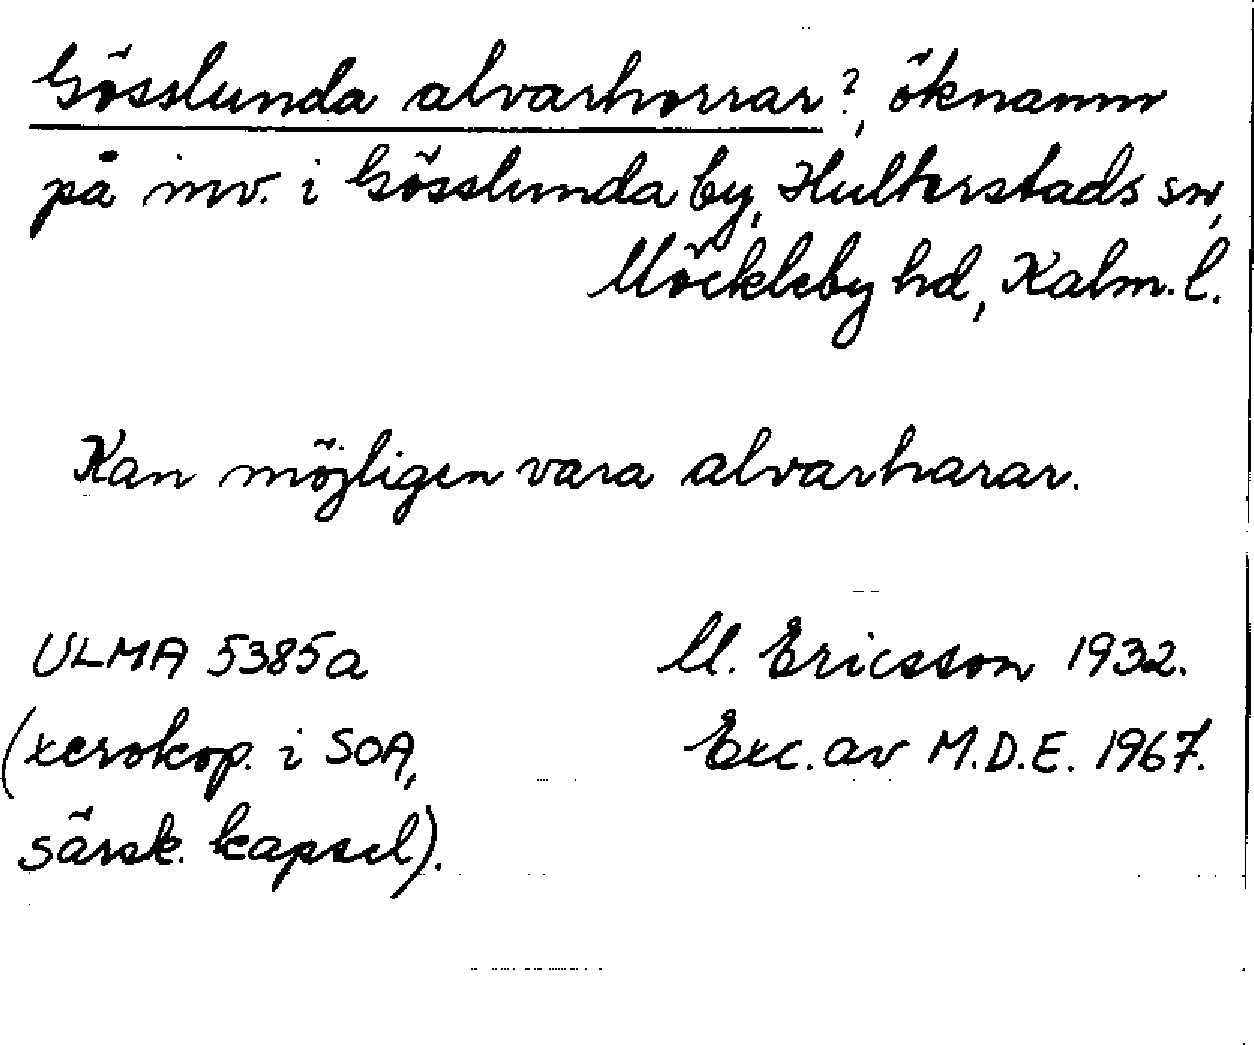 Gösslunda alvarhorrar?, öknamn
på inv. i Gösslunda by, Hulterstads sn,
Möckleby hd, Kalm. l.
Kan möjligen vara alvarharar.
ULMA 5385a
(xerokop. i SOA,
särsk. kapsel).
U. Ericsson 1932.
Exc. av M.D.E. 1967.